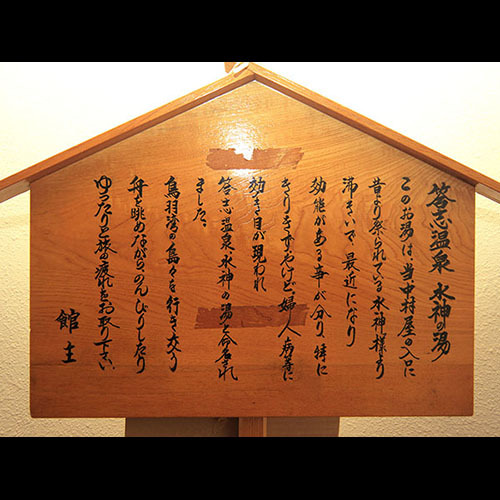 答志温泉 水神の湯
このお湯は、当中村屋の入口に
昔より祭られている水神様より
沸きいで、最近になり
効能がある事が分り、特に
きりきず、やけど、婦人病等に
効き目が現われ
答志温泉、水神の湯と命名され
ました。
鳥羽湾の島々を行き交う
舟を眺めながらのんびりしたり
ゆったりと旅の疲れをお取り下さい
館主